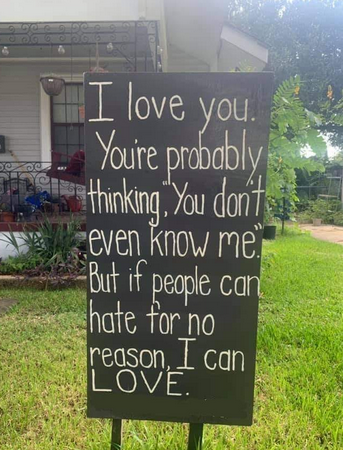 I love you.
You're probably
thinking, "You don't
even know me."
But if people can
hate for no
reason, I can
LOVE.